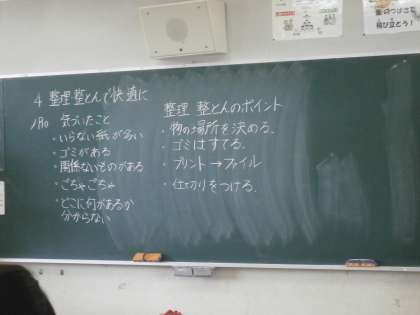 4 整理整とんで快適に
気づいたこと
・いらない紙が多い
・ゴミがある
・関係ないものがある
・ごちゃごちゃ
・どこに何があるか
分からない
整理 整とんのポイント
・物の場所を決める。
・ゴミはすてる。
・プリント→ファイル
・仕切りをつける。